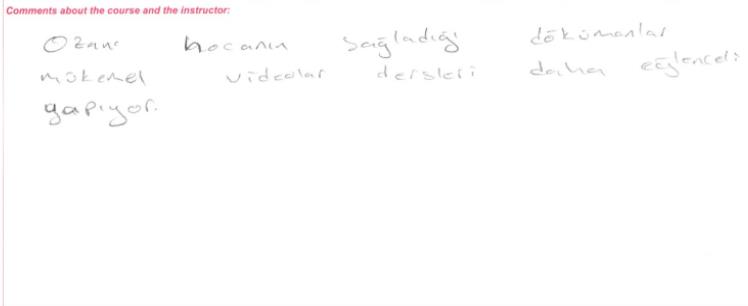 Comments about the course and the instructor:
Ozan hocanın sağladığı dökümanlar
mükemel videolar dersleri daha eğlenceli
yapıyor.